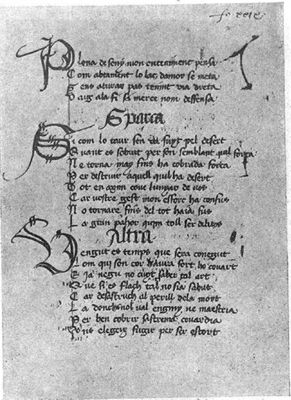 Plena deseny mon enteniment pensa
Com abtament lo laç damor se meta
E sens aturar pas tenint via dreta
Vaig ala fi si merce nom deffensa
Sparça
Si com lo taur sen va fuyt pel desert
Quant es sobrat per son semblant quil força
Ne torna may fins ha cobrada força
Per destruir aquell quil ha desert
Tot en axim cove lunyar de vos
Car vostre gest mon esforç ha confus
No tornare fins del tot haia fus
La gran pahor quim toll ser delitos
Altra
Vengut es temps que sera conegut
Lom qui son cor haura fort ho covart
E ia negu no cuyt saber tal art
Que si es flach tal no sia sabut
Car al perill dels
La donchs no val enginy ne maestria
Per ben cobrir lastrema covardia
elegeix fugir per ser estort